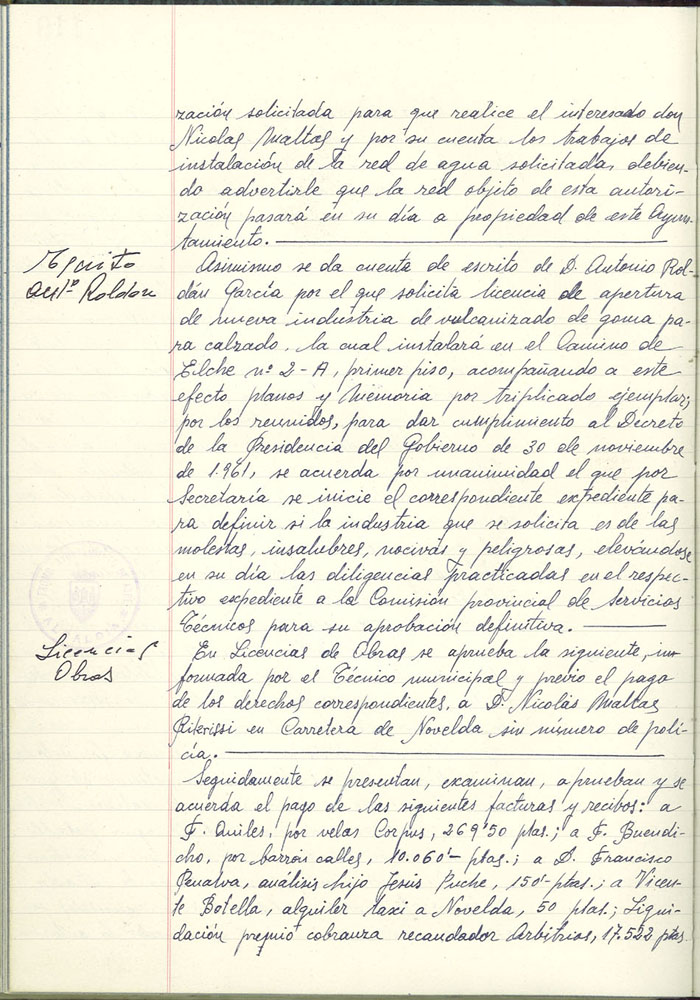 zación solicitada para que realice el interesado don
Nicolas Maltas y por su cuenta los trabajos de
instalación de la red de agua solicitadas debien-
do advertirle que la red objeto de esta autori-
zación pasará en su día a propiedad de este Ayun-
tamiento.
Escrito
Antº Roldan
Asimismo se da cuenta de escrito de D. Antonio Rol-
dán García por el que solicita licencia de apertura
de nueva industria de vulcanizado de goma pa-
ra calzado, la cual instalará en el Camino de
Elche nº 2-A, primer piso, acompañando a este
efecto planos y Memoria por triplicado ejemplar;
por los reunidos, para dar cumplimiento al Decreto
de la Presidencia del Gobierno de 30 de noviembre
de 1.961, se acuerda por unanimidad el que por
Secretaría se inicie el correspondiente expediente pa-
ra definir si la industria que se solicita es de las
molestas, insalubres, nocivas y peligrosas, elevándose
en su día las diligencias practicadas en el respec-
tivo expediente a la Comisión provincial de Servicios
Técnicos para su aprobación definitiva.
Licencias
Obras
En Licencias de Obras se aprueba la siguiente, in-
formada por el Técnico municipal y previo el pago
de los derechos correspondientes, a D. Nicolás Maltas
en Carretera de Novelda sin número de poli-
cía.
Seguidamente se presentan, examinan, aprueban y se
acuerda el pago de las siguientes facturas y recibos: a
F. Quiles, por velas Corpus, 269'50 ptas.; a F. Buendi-
cho, por barrón calles, 10.060'- ptas.; a D. Francisco
Penalva, análisis hijo Jesús Puche, 150'- ptas.; a Vicen-
te Botella, alquiler taxi a Novelda, 50 ptas.; Liqui-
dación premio cobranza recaudador Arbitrios, 17.522 ptas.